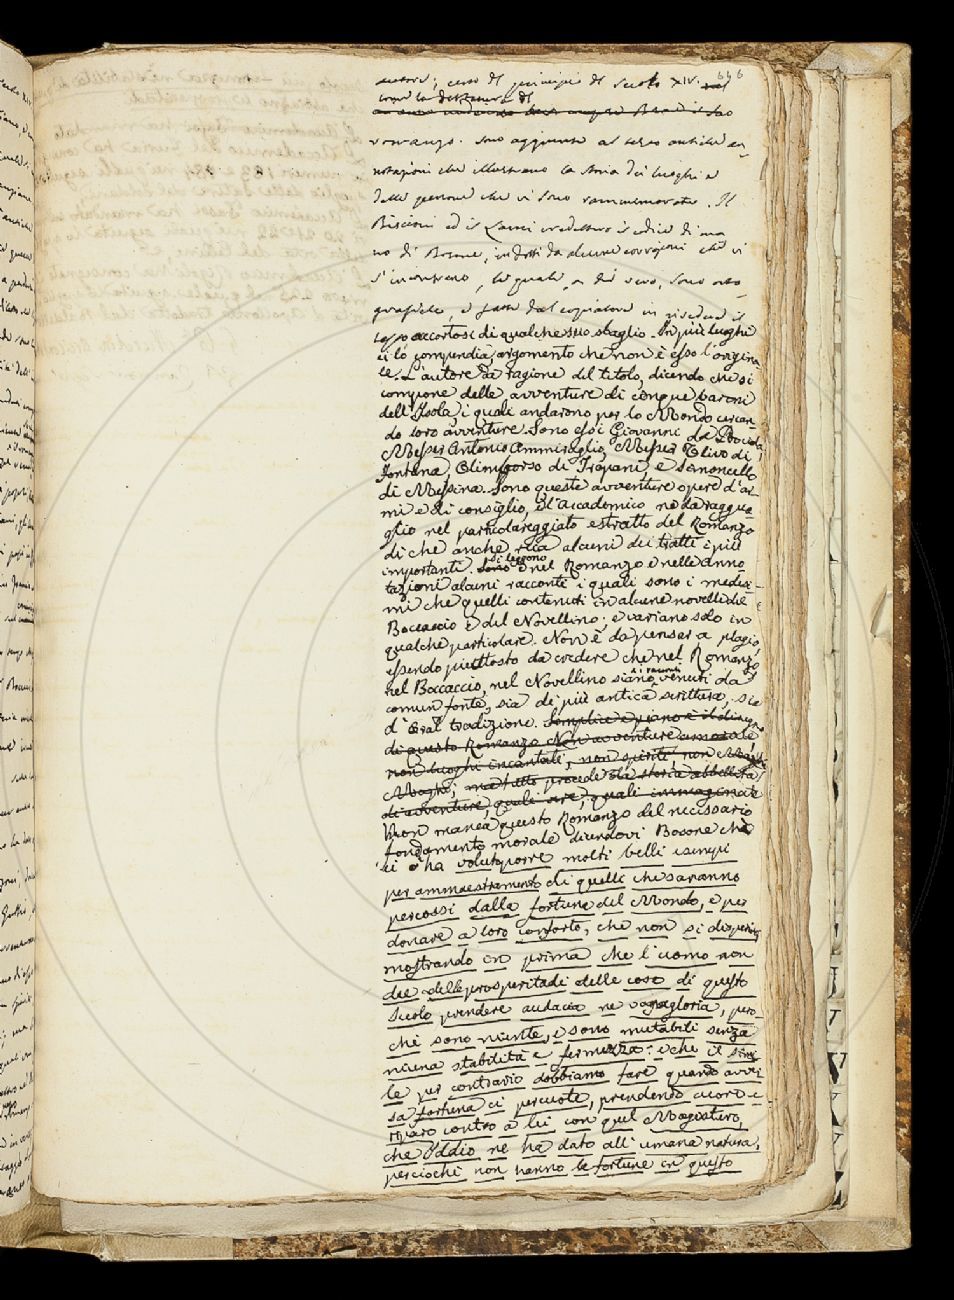 646
autore; verso il principio del Secolo XIV.
come la dettatura del
romanzo. Sono aggiunte al testo antiche an-
notazioni che illustrano la storia dei luoghi e
delle persone che vi sono rammemorate. Il
Biscioni ed il Lami credettero il codice di ma
no di Bosone, indotti da alcune correzioni che vi
s'incontrano, le quali, a dir vero, sono orto-
grafiche, e fatte dal copiatore in rivedere il
accortosi di qualche suo sbaglio. In più luoghi
ei lo compendia, argomento che non è esso l'origina
le. L'autore dà ragione del titolo, dicendo che si
compone delle avventure di cinque baroni
dell'Isola i quali andarono per lo Mondo cercan
do loro avventure. Sono essi Giovanni da Procida,
Messer Antonio Ammiraglio, Messer Ulivo di
Fontana, Olimborso di Trapani, e Simoncello
di Messina. Sono queste avventure opere d'ar
mi e di consiglio, e l'Accademico ne dà raggua
glio nel particolareggiato estratto del Romanzo
di che anche reca alcuni dei tratti i più
importanti. Sono si leggono e nel Romanzo e nelle Anno
tazioni alcuni racconti i quali sono i medesi-
mi che quelli contenuti in alcune novelle del
Boccaccio e del Novellino; e variano solo in
qualche particolare. Non è da pensar a plagio,
essendo piuttosto da credere che nel Romanzo
nel Boccaccio, nel Novellino siano i racconti venuti da
comun fonte, sia di più antica scrittura, sia
d'oral tradizione. Semplice e piano è il disegno
di questo Romanzo. Non avventure amorose
non luoghi incantati, non spiriti, non Maghe
Maghi; ma tutto procede da storia abbellita
di avventure, quali vere, quali immaginate
Non manca questo Romanzo del necessario
fondamento morale dicendovi Bosone che
ei ha voluto porre molti belli esempi
per ammaestramento di quelli che saranno
percossi dalla fortuna del Mondo, e per
donare a loro conforto, che non si disperino
mostrando in prima che l'uomo non
dee delle prosperitadi delle cose di questo
Secolo prendere audacia ne vanagloria, pero
che sono niente, e sono mutabili senza
niuna stabilità e fermezza: e che il simi
le per contrario dobbiamo fare quando avvi
sa fortuna ci percuote, prendendo cuore e
riparo contro a lei con quel Magistero,
che Iddio ne ha dato all'umana natura,
perciochè non hanno le fortune in questo